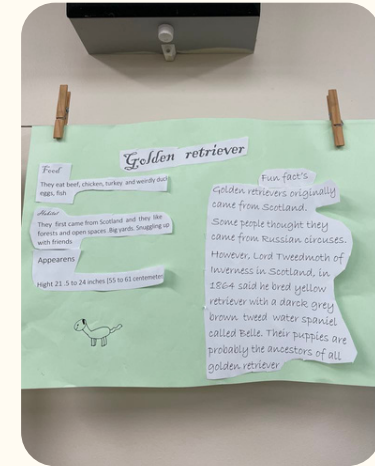 Golden retriever
Food
They eat beef, chicken, turkey and weirdly duck
eggs, fish
Habitat
They first came from Scotland and they like
forests and open spaces. Big yards. Snuggling up
with friends
Appearens
Hight 21 .5 to 24 inches (55 to 61 centemeter
Fun fact's
Golden retrievers originally
came from Scotland.
Some people thought they
came from Russian circuses.
However, Lord Tweedmoth of
Inverness in Scotland, in
1864 said he bred yellow
retriever with a darck grey
brown tweed water spaniel
called Belle. Their puppies are
probably the ancestors of all
golden retriever